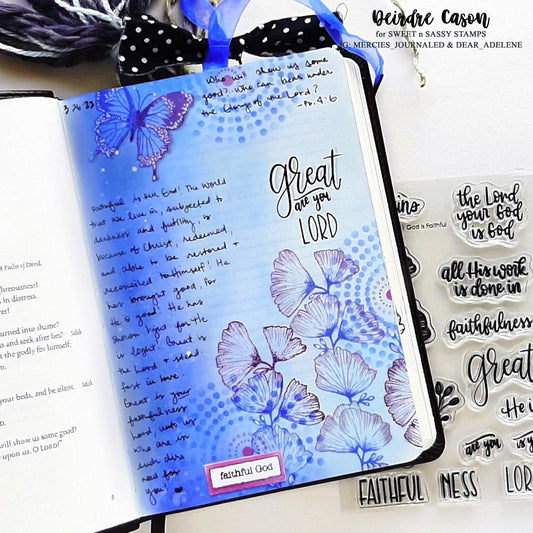 Deirdre Cason
for SWEET n SASSY STAMPS
IG: MERCIES_JOURNALED & DEAR_ADELENE
Who will show us some
good? Who can bear under
the Glory of the Lord?
-Ps. 4:6
3 26 23
Faithful is our God! The World
that we live in, subjected to
darkness and futility, is
because of Christ, redeemed,
and able to be restored +
reconciled to Himself! He
has brought good, for
He is good! He has
shown light for He
is light. Great is
the Lord + stead-
fast in love.
Great is your
faithfulness
Lord unto us
who are in
such dire
need for
you!
great
are you
LORD
faithful God
A Psalm of David.
in distress.
urned into shame?
s and seek after lies? Selah
t the godly for himself;
our beds, and be silent. Selah
will show us some good?
upon us, O LORD!"
8
the Lord
your God
is God
God is Faithful
all His work
is done in
faithfulness
Great
He is
are you
is y
FAITHFUL
NESS
LOR